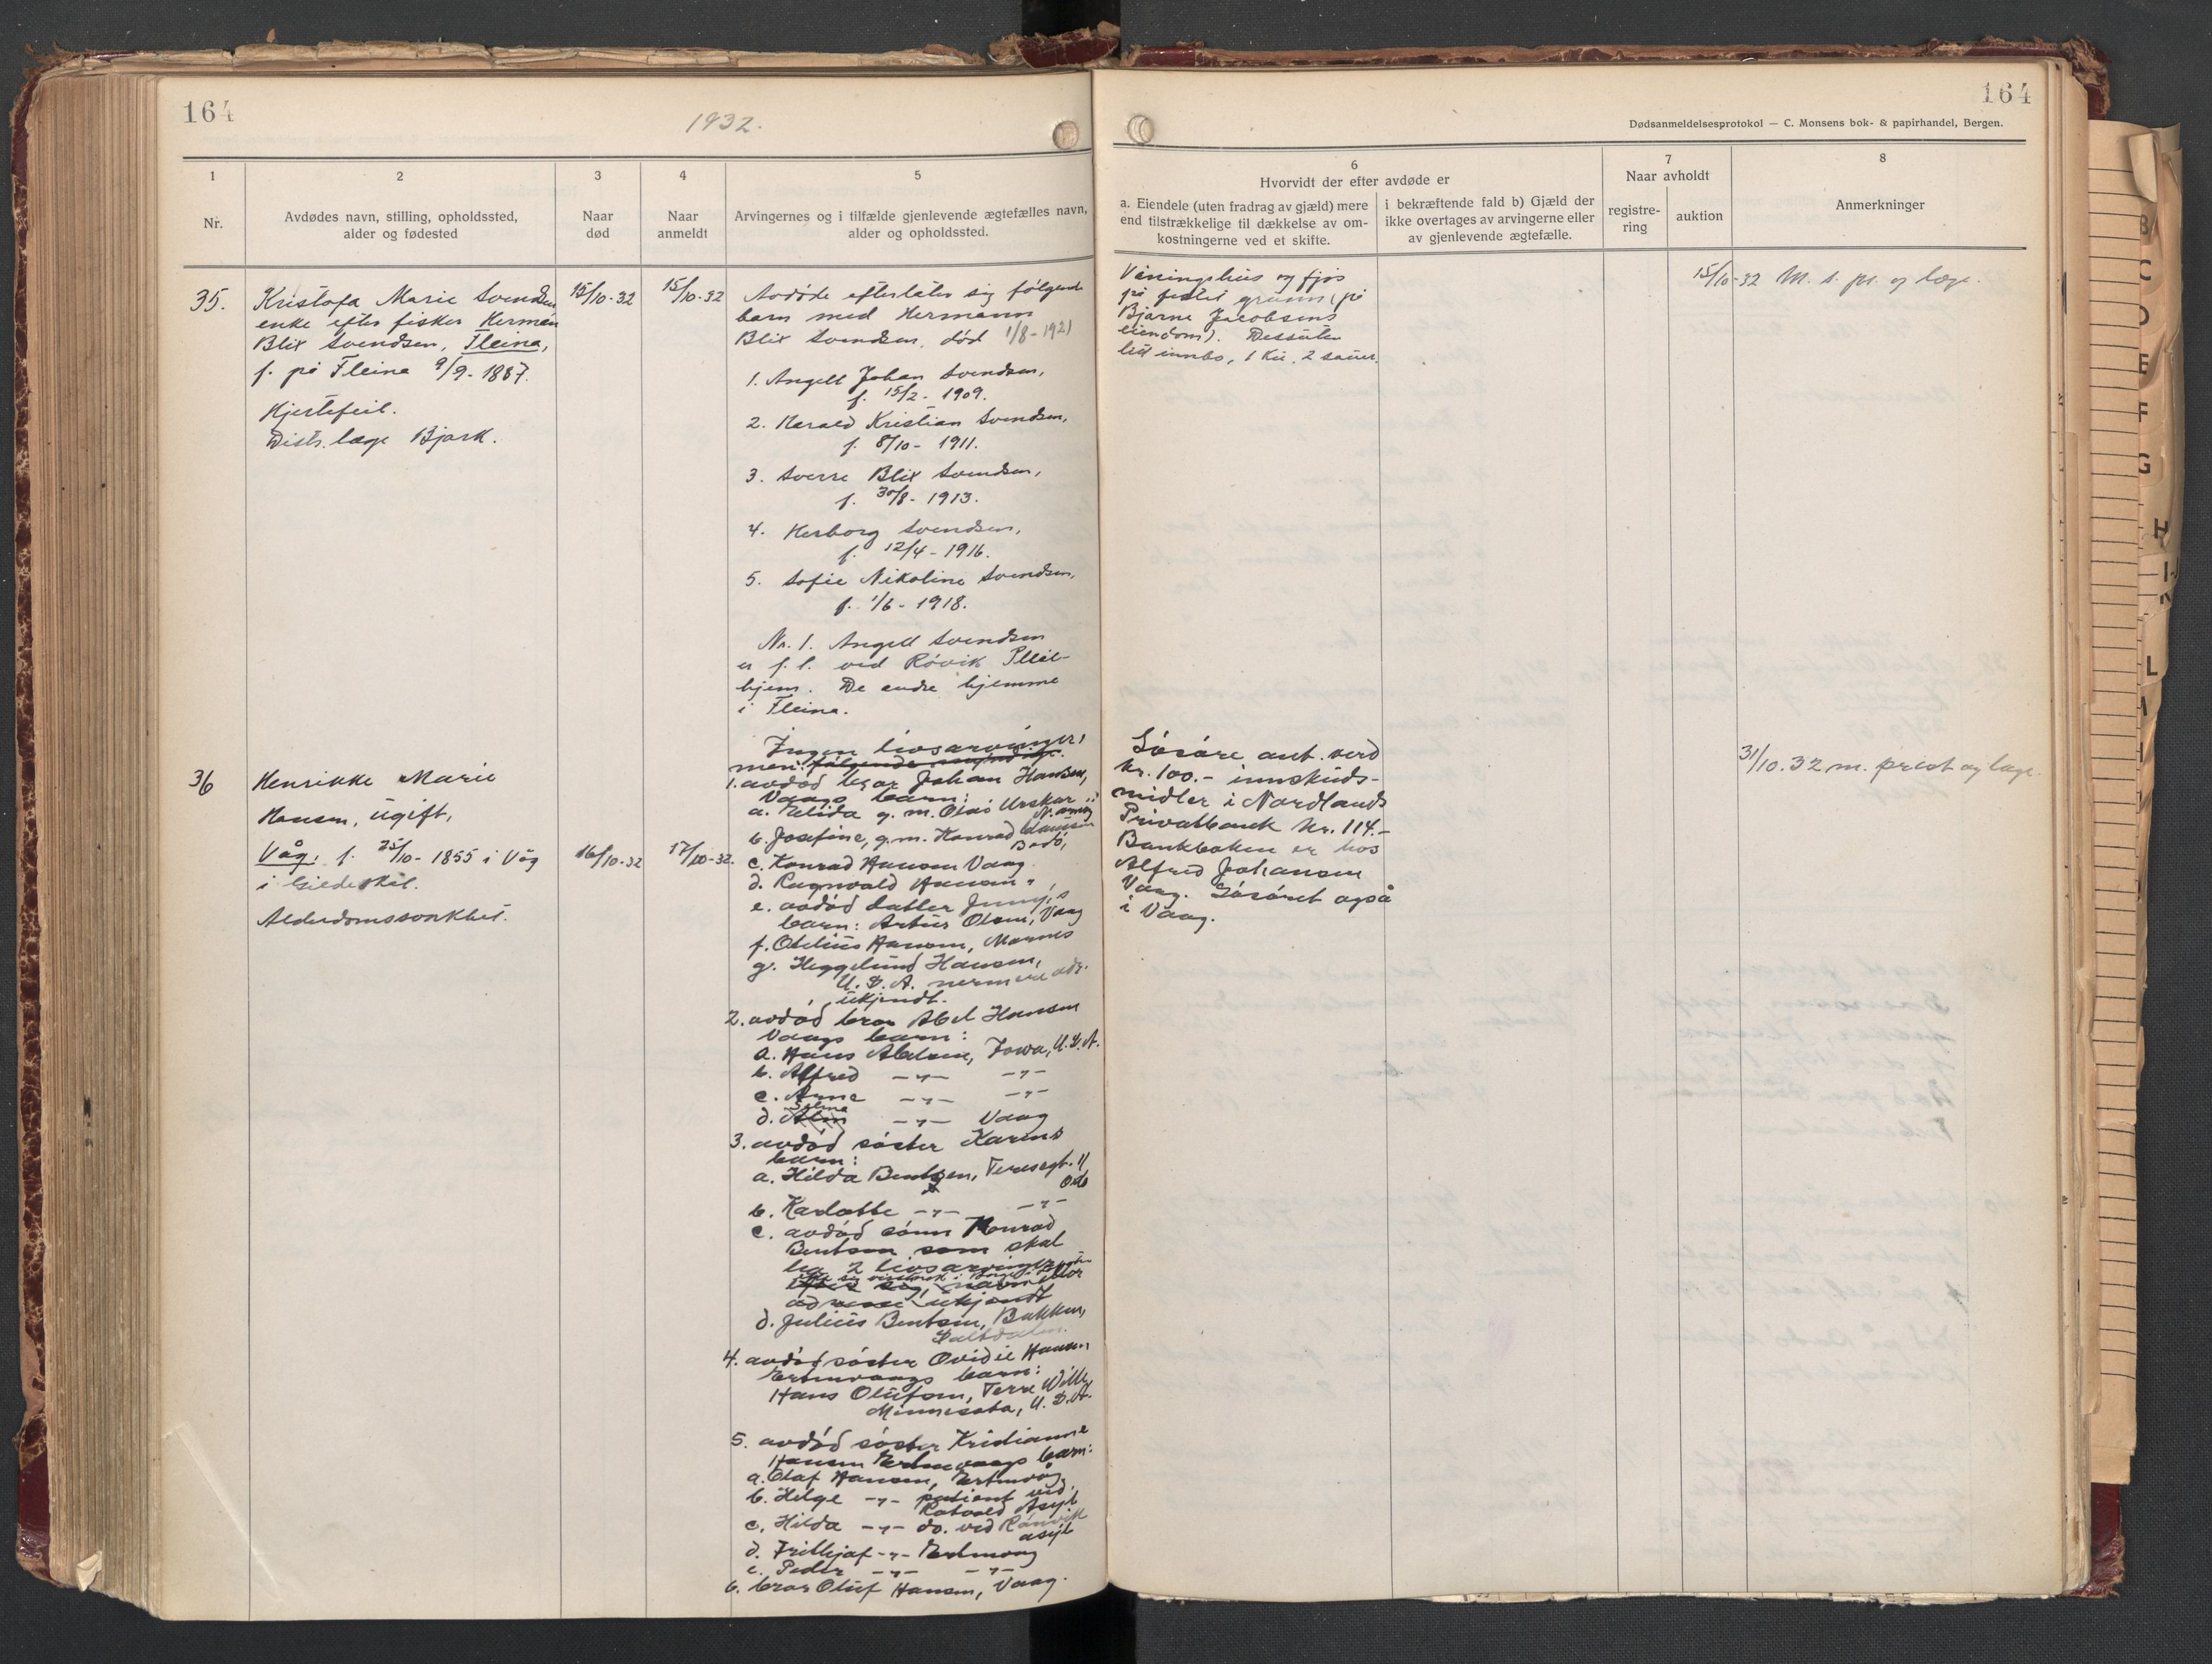 164
1932.
164
Dødsanmeldelsesprotokol — C. Monsens bok- & papirhandel, Bergen.
1
2
3
4
5
6
7
8
Nr.
Avdødes navn, stilling, opholdssted,
alder og fødested
Naar
død
Naar
anmeldt
Arvingernes og i tilfælde gjenlevende ægtefælles navn,
alder og opholdssted.
Hvorvidt der efter avdøde er
a. Eiendele (uten fradrag av gjæld) mere
end tilstrækkelige til dækkelse av om-
kostningerne ved et skifte.
i bekræftende fald b) Gjæld der
ikke overtages av arvingerne eller
av gjenlevende ægtefælle.
Naar avholdt
registre-
ring
auktion
Anmerkninger
35.
Kristofa Marie Svendsen
enke efter fisker Herman
Blix Svendsen, Fleina,
f. på Fleina 9/9-1887.
Hjertefeil.
Distr. læge Bjark.
15/10-32
15/10-32
Avdøde efterlater sig følgende
barn med Hermann
Blix Svendsen, død 1/8-1921
1. Angell Johan Svendsen,
f. 15/2-1909.
2. Harald Kristian Svendsen,
f. 8/10-1911.
3. Sverre Blix Svendsen,
f. 30/8-1913.
4. Herborg Svendsen,
f. 12/4-1916.
5. Sofie Nikoline Svendsen,
f. 1/6-1918.
Nr. 1. Angell Svendsen
er f. t. ved Røvik Pleie-
hjem. De andre hjemme
i Fleina.
Våningshus og fjøs
på festet grunn (på
Bjarne Jacobsens
eiendom). Dessuten
litt innbo, 1 ku, 2 sauer.
15/10-32 M. s. pr. og læge.
36
Henrikke Marie
Hansen, ugift,
Våg, f. 25/10-1855 i Våg
i Gildeskål.
Alderdomssvakhet.
16/10-32
17/10-32.
Ingen livsarvinger,
men følgende
1. avdød bror Johan Hansen,
Vaags barn:
a. Elida g. m. Olai Urskar
b. Josefine, g. m. Konrad Clausen
Bodø,
c. Konrad Hansen Vaag
d. Ragnvald Hansen "
e. avdød datter Jenny's
barn: Artur Olsen, Vaag
f. Otelius Hansen, Mannes
g. Heggelund Hansen,
U.S.A. nermere adr.
ukjendt.
2. avdød bror Abel Hansen
Vaags barn:
a. Hans Abelsen, Iowa, U.S.A.
b. Alfred -"- -"-
c. Anne -"- -"-
d. Selma -"- Vaag
3. avdød søster Karens
barn:
a. Hilda Bentsen, Teresegt. 11
Oslo
b. Karlotte -"- -"-
c. avdød sønn Konrad
Bentsen som skal
ha 2 livsarvinger
efter sig, navn eller
adresse ukjendt
d. Julius Bentsen, Bakken,
Saltdalen.
4. avdød søster Ovidie Hansen
Ertenvaags barn:
Hans Olufsen, Terre Wille
Minnesota, U.S.A.
5. avdød søster Kristianne
Hansen Ertenvaags barn:
a. Olaf Hansen, Ertenvåg
b. Helge -"- patient ved
Rotvold Asyl
c. Hilda -"- do. ved Rønvik
asyl
d. Frithjof -"- Ertenvaag
e. Peder -"- -"-
6. bror Oluf Hansen, Vaag.
Løsøre ant. verd
kr. 100.- innskuds-
midler i Nordlands
Privatbank kr. 114.-
Bankboken er hos
Alfred Johansen
Vaag. Løsøret også
i Vaag.
31/10.32 m. prest og læge.
B
C
D
E
F
G
H
I-
K
L
M